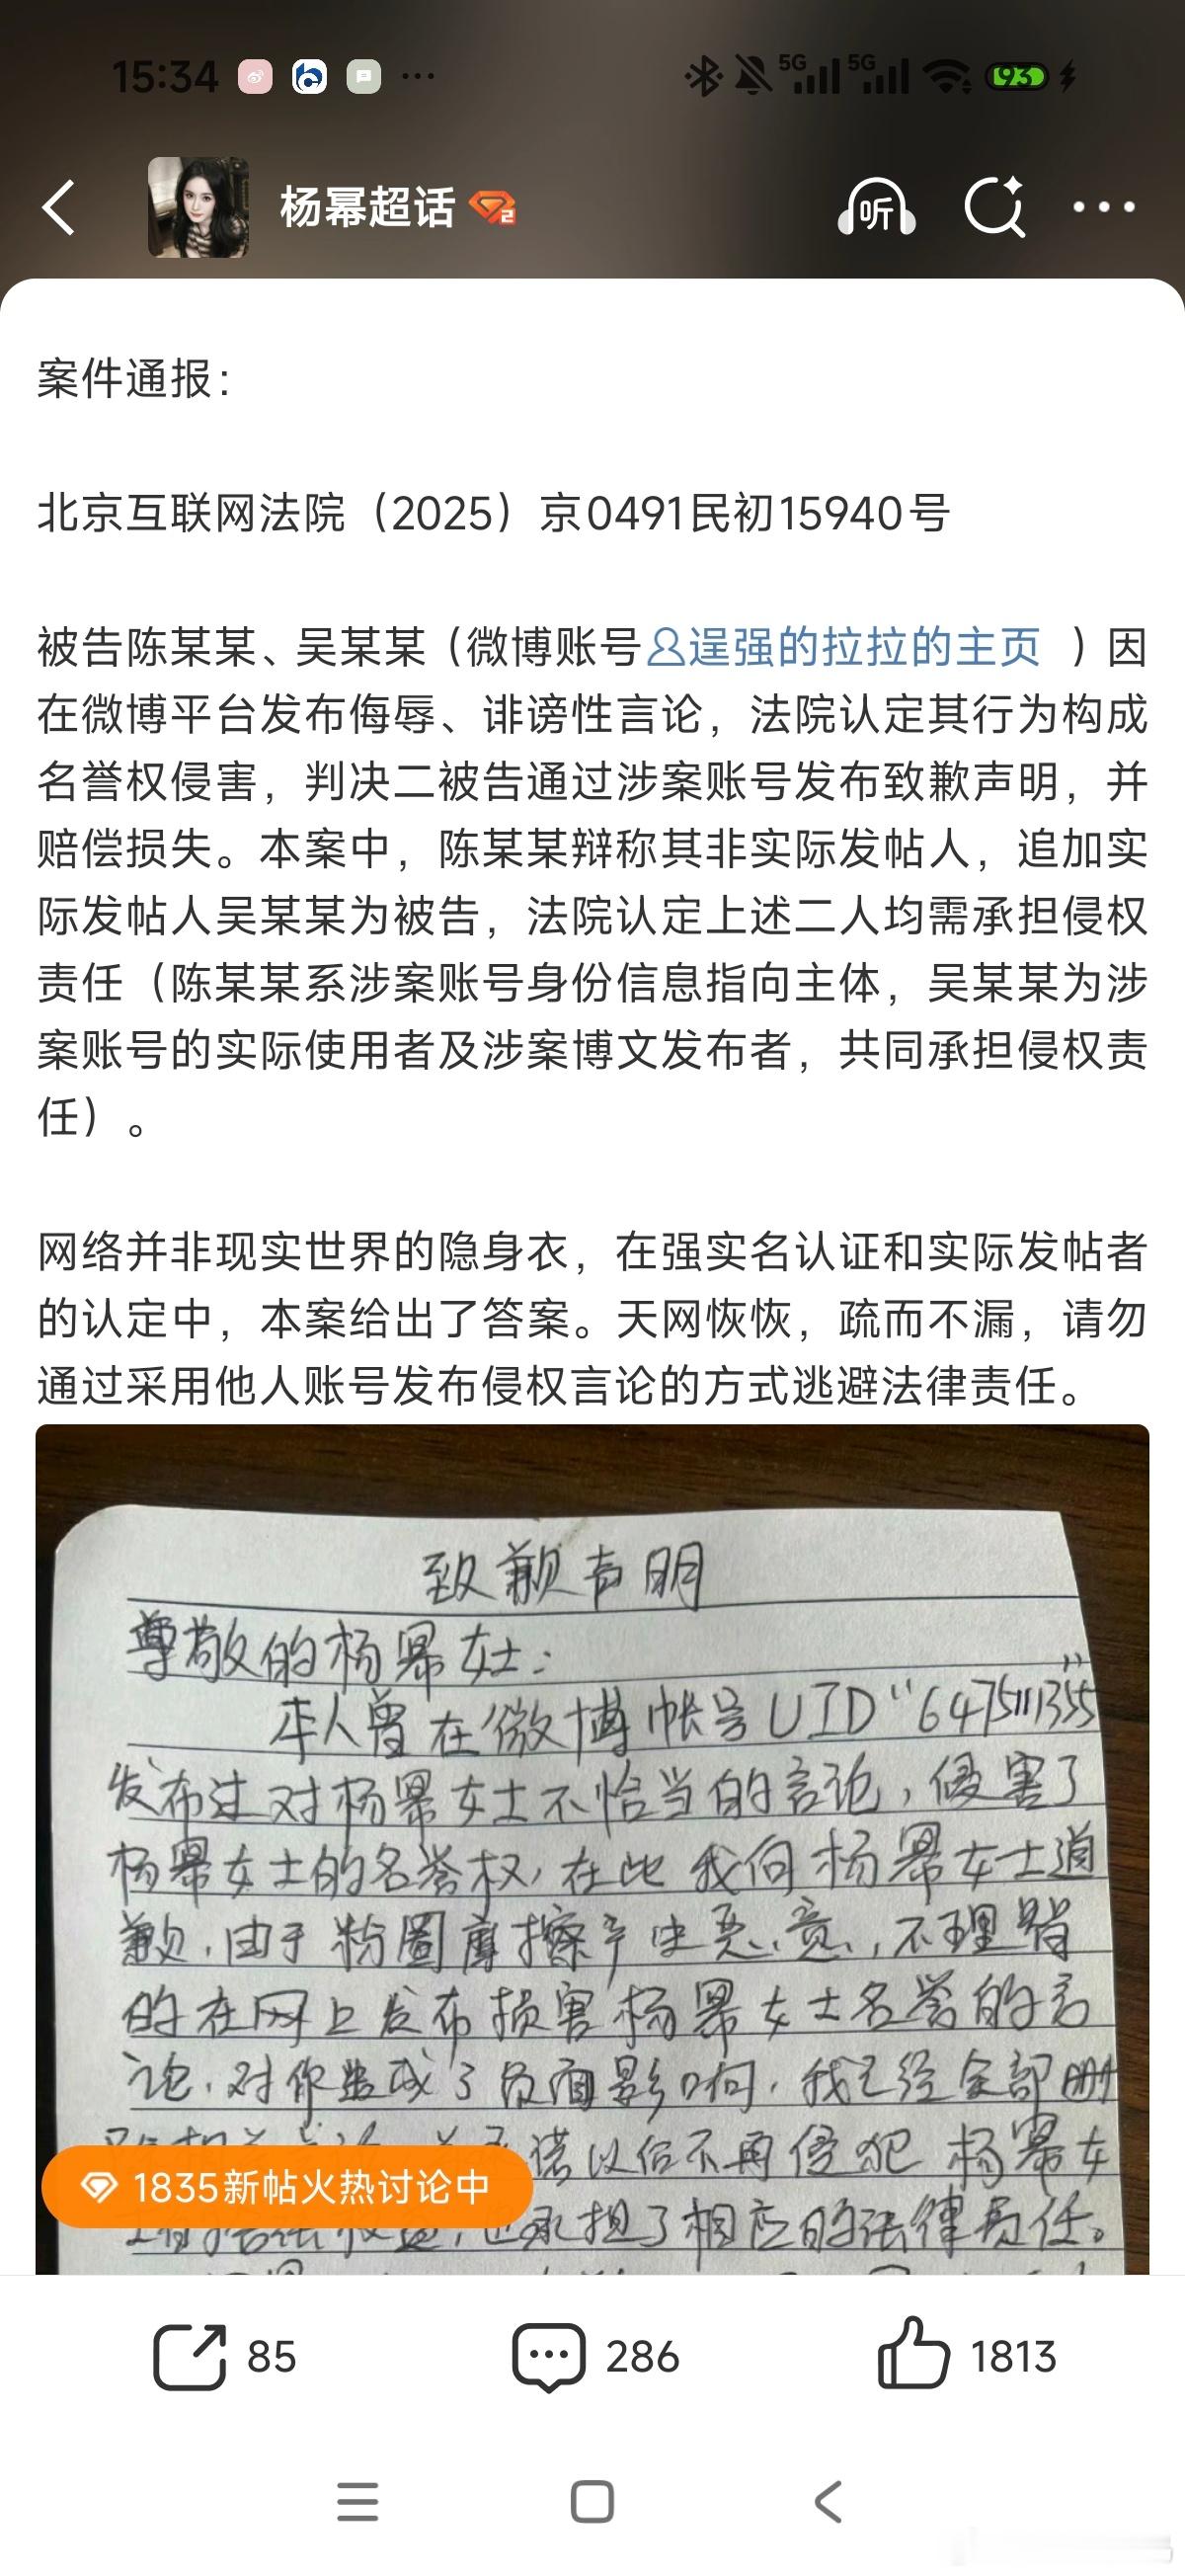 15:34
5G 5G 93
杨幂超话 2
听
案件通报：
北京互联网法院（2025）京0491民初15940号
被告陈某某、吴某某（微博账号逞强的拉拉的主页 ）因
在微博平台发布侮辱、诽谤性言论，法院认定其行为构成
名誉权侵害，判决二被告通过涉案账号发布致歉声明，并
赔偿损失。本案中，陈某某辩称其非实际发帖人，追加实
际发帖人吴某某为被告，法院认定上述二人均需承担侵权
责任（陈某某系涉案账号身份信息指向主体，吴某某为涉
案账号的实际使用者及涉案博文发布者，共同承担侵权责
任）。
网络并非现实世界的隐身衣，在强实名认证和实际发帖者
的认定中，本案给出了答案。天网恢恢，疏而不漏，请勿
通过采用他人账号发布侵权言论的方式逃避法律责任。
致歉声明
尊敬的杨幂女士：
本人曾在微博帐号UID“6475111355”
发布过对杨幂女士不恰当的言论，侵害了
杨幂女士的名誉权，在此我向杨幂女士道
歉，由于粉圈摩擦产生恶意，不理智
的在网上发布损害杨幂女士名誉的言
论，对你造成了负面影响，我已经全部删
诺以后不再侵犯杨幂女
承担了相应的法律责任。
1835新帖火热讨论中
85
286
1813